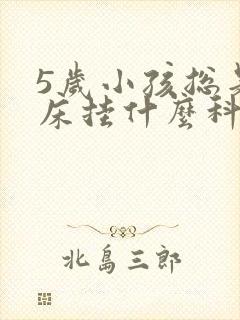 5歲小孩總是
床挂什麼科
北島三郎